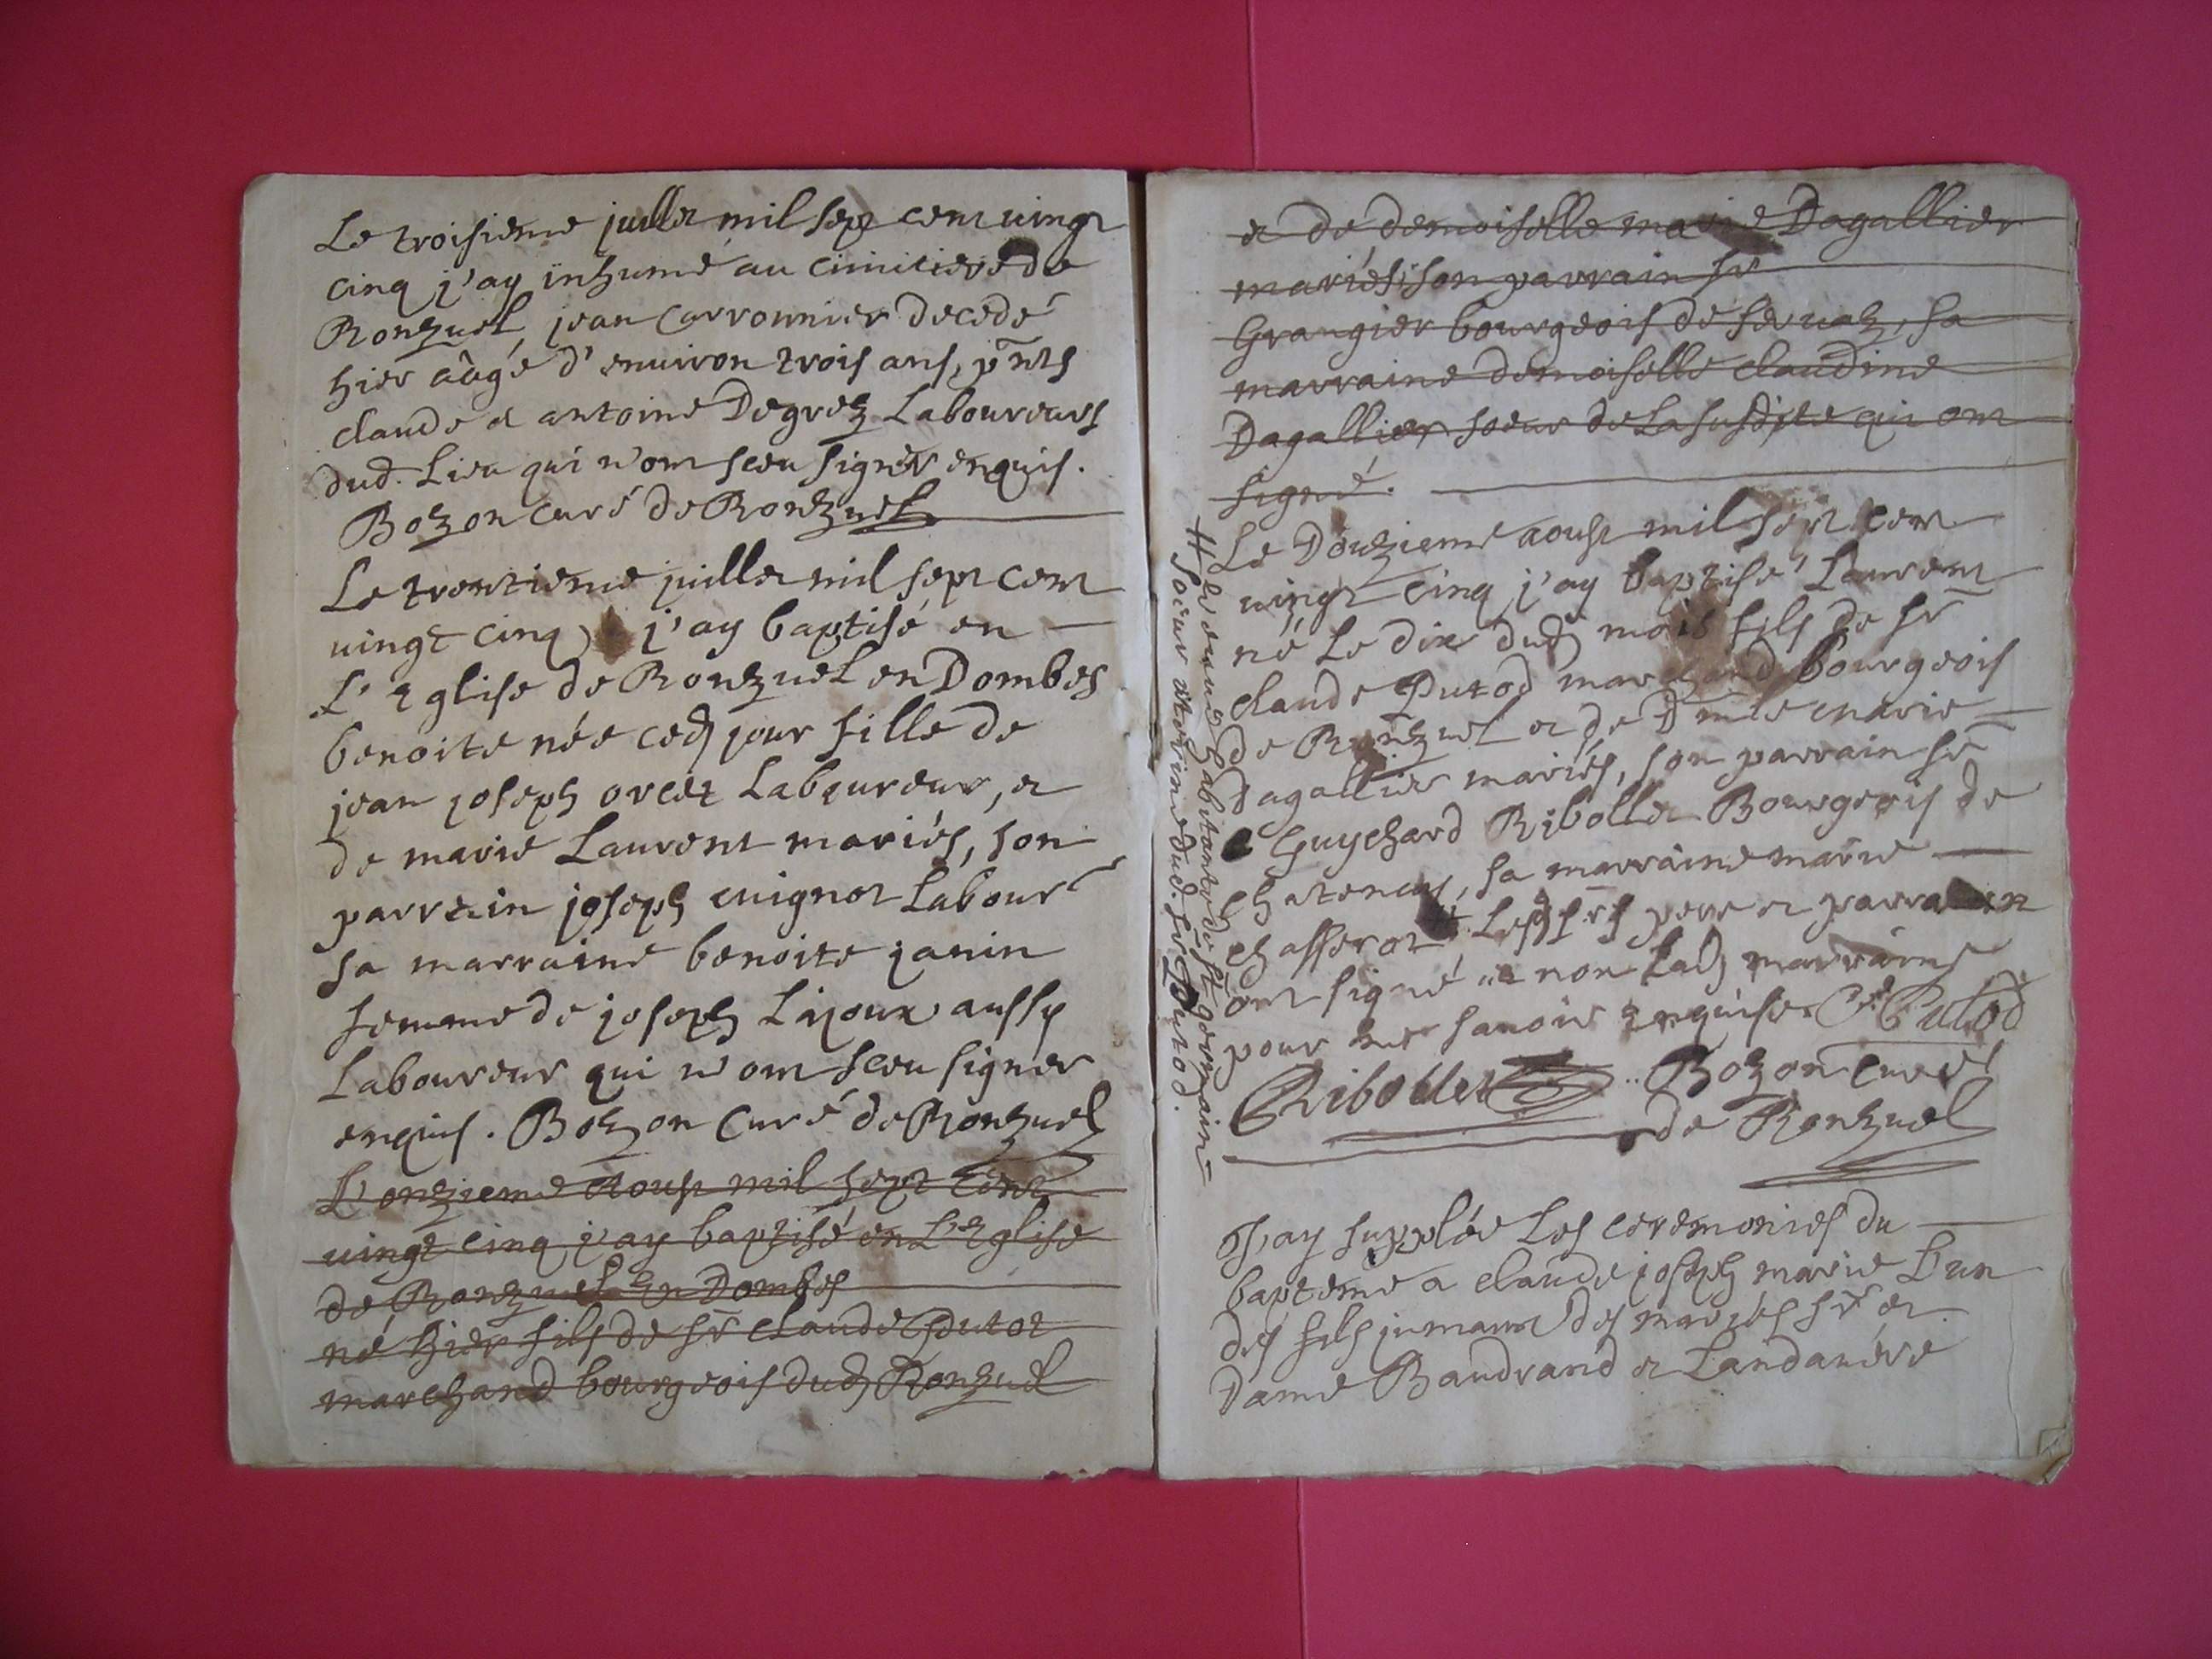 Le troisieme juillet mil sept cent vingt
cinq j'ay inhumé au cimitiere de
Ronzuel jean Carronnier decedé
hier aâgé d'environ trois ans, pñts
claude et antoine Degrez Laboureurs
dud. Lieu qui n'ont sceu signer enquis.
Bozon curé de Ronzuel
Le trentieme juillet mil sept cent
vingt cinq j'ay baptisé en
L'Eglise de Ronzuel en Dombes
benoite née ced jour fille de
jean joseph orcet Laboureur, et
de marie Laurent mariés, son
parrein joseph cuignot Labour
sa marraine benoite janin
femme de joseph Lajoux aussy
Laboureur qui n'ont sceu signer
enquis. Bozon Curé de Ronzuel
L'onzieme Aoust mil sept cent
vingt cinq j'ay baptisé en L'Eglise
de Ronzuel En Dombes
né hier fils de sr claude Putot
marchand bourgeois dud Ronzuel
et de demoiselle marie Dagallier
mariés; son parrain sr
Grangier bourgeois de servaz, sa
marraine demoiselle claudine
Dagallier soeur de La susdite qui ont
signé.
Le Douzieme aoust mil sept cent
vingt cinq j'ay baptisé Laurent
né Le dix dud mois fils de sr
claude Putod marchand bourgeois
de Ronzuel et de Dmlle marie
Dagallier mariés, son parrain sr
Guychard Ribollet Bourgeois de
Chatenay, sa marraine marie
chasserot # Lesd srs pere et parrain
ont signé et non Lad marraine
pour ne sçavoir enquise. C. Putod
Ribollet Bozon curé
de Ronzuel
# veuve habitante de St germain
soeur uterine dud. sr Putod.
J'ay supplée Les ceremonies du
bapteme a claude joseph marie L'un
des fils jumaux des mariés sr et
Dame Baudrand et Landanéve